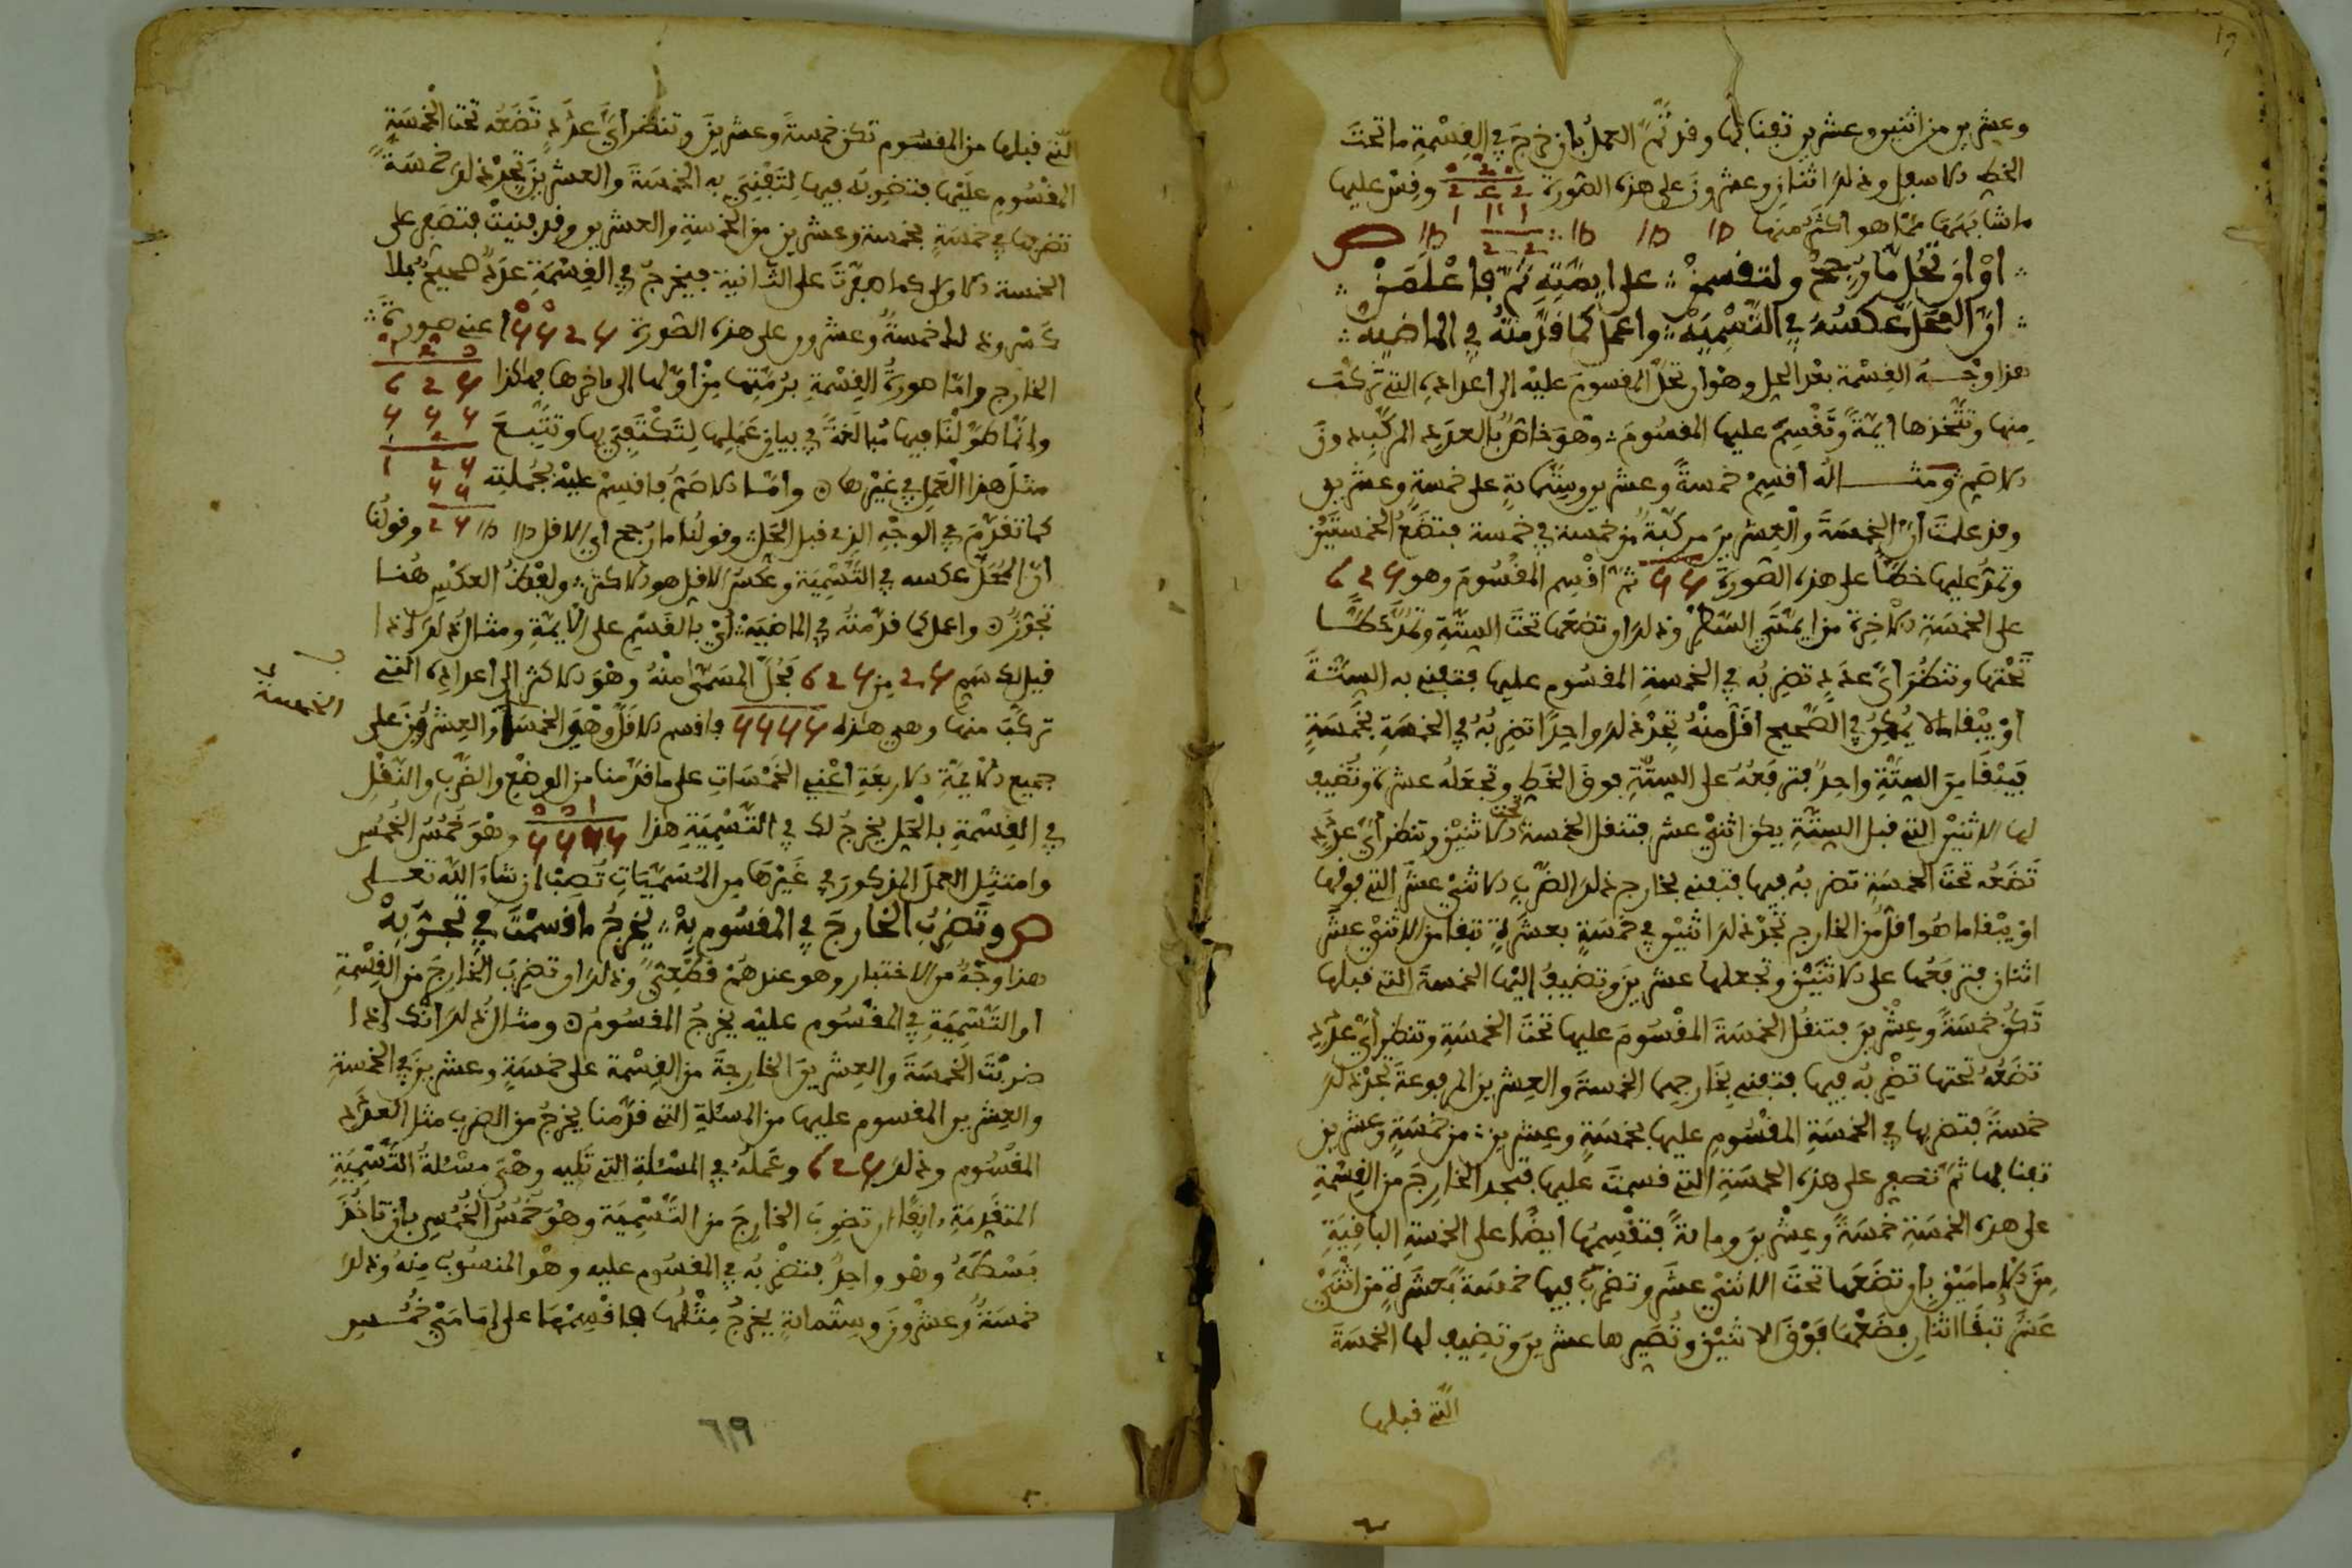 وعشرين من اثنين وعشرين تفنا بها وقد تم العمل بان خرج في القسمة ما تحت
الخط الاسفل وذلك اثنان وعشرون على هذه الصورة وقس عليها
ما شابهها مما هو اكثر منها
او أن تحل ما رجح ولتقسمن على ايمته ثم فاعلمن
ان المحل عكسه في التسميه واعمل كما قدمته في الماضيه
هذا وجه القسمة بعد الحل وهو ان تحل المقسوم عليه الى اعداده التي تركب
منها وتتخذها ايمة وتقسم عليها المقسوم وهو خاص بالعدد المركب دون
الاصم ومثاله أقسم خمسة وعشرين وستمائة على خمسة وعشرين
وقد علمت أن الخمسة والعشرين مركبة من خمسة في خمسة فتضع الخمستين
وتمد عليها خطا على هذه الصورة 55 ثم اقسم المقسوم وهو 625
على الخمسة الاخرة من ايمتي السطر وذلك ان تضعها تحت الستة وتمد خطا
تحتها وتنظر أي عدد تضربه في الخمسة المقسوم عليها فتفني به الستة
او يبقا ما لا يمكن في الصحيح اقل منه تجد ذلك واحدا تضربه في الخمسة بخمسة
فيبقا من الستة واحد فترفعه على الستة فوق الخط وتجعله عشرة وتضيف
لها الاثنين التي قبل الستة يكن اثني عشر فتنقل الخمسة تحت الاثنين وتنظر أي عدد
تضعه تحت الخمسة تضربه فيها فتفني بخارج ذلك الضرب الاثني عشر التي فوقها
او يبقا ما هو اقل من الخارج تجد ذلك اثنين في خمسة بعشرة تبقا من الاثني عشر
اثنان فترفعها على الاثنين وتجعلها عشرين وتضيف إليها الخمسة التي قبلها
تكن خمسة وعشرين فتنقل الخمسة المقسوم عليها تحت الخمسة وتنظر أي عدد
تضعه تحتها تضربه فيها فتفني بخارجها الخمسة والعشرين المرفوعة تجد ذلك
خمسة فتضربها في الخمسة المقسوم عليها بخمسة وعشرين من خمسة وعشرين
تفنا بها ثم تضع على هذه الخمسة التي قسمت عليها فتجد الخارج من القسمة
على هذه الخمسة خمسة وعشرين ومائة فتقسمها ايضا على الخمسة الباقية
من الامامين بان تضعها تحت الاثني عشر وتضرب فيها خمسة بعشرة من اثني
عشر تبقا اثنان فضعها فوق الاثنين وتصيرها عشرين وتضيف لها الخمسة
التي قبلها
التي قبلها من المقسوم تكن خمسة وعشرين وتنظر أي عدد تضعه تحت الخمسة
المقسوم عليها فتضربه فيها لتفني به الخمسة والعشرين تجد ذلك خمسة
تضربها في خمسة بخمسة وعشرين من الخمسة والعشرين وقد فنيت فتضع على
الخمسة الاولى كما صفرت على الثانية فيخرج في القسمة عدد صحيح بلا
كسر وذلك خمسة وعشرون على هذه الصورة 5 2 5 5 اعني صورة
الخارج واما صورة القسمة برمتها من أولها الى ءاخرها فهاكذا 5 2 6
وإنما طولنا فيها مبالغة في بيان عملها لتكتفي بها وتتبع 5 5 5
مثل هذا العمل في غيرها وأما الاصم فاقسم عليه بجملته
كما تقدم في الوجه الذي قبل الحل وقولنا ما رجح أي الاقل 25 وقولنا
أن المحل عكسه في التسمية وعكس الاقل هو الاكثر ولفظ العكس هنا
تجوز واعمل كما قدمته في الماضيه أي بالقسم على الايمة ومثال ذلك إذا
قيل لك سم 25 من 625 فحل المسمى منه وهو الاكثر الى اعداده التي
تركب منها وهي هذه 5555 فاقسم الاقل وهو الخمسة والعشرون على
الخمسة
جميع الايمة الاربعة أعني الخمسات على ما قدمنا من الوضع والضرب والنقل
في القسمة بالحل يخرج لك في التسمية هذا 5555 وهو خمس الخمس
وامتثل العمل المذكور في غيرها من المسميات تصب ان شاء الله تعالى
ص وتضرب الخارج في المقسوم به يخرج ما قسمت في تجربه
هذا وجه من الاختبار وهو عندهم قطعي وذلك ان تضرب الخارج من القسمة
او التسمية في المقسوم عليه يخرج المقسوم ومثال ذلك أنك إذا
ضربت الخمسة والعشرين الخارجة من القسمة على خمسة وعشرين في الخمسة
والعشرين المقسوم عليها من المسئلة التي قدمنا يخرج من الضرب مثل العدد
المقسوم وذلك 625 وعمله في المسئلة التي تليه وهي مسئلة التسمية
المتقدمة ءانفا ان تضرب الخارج من التسمية وهو خمس الخمس بان تاخذ
بسطه وهو واحد فتضربه في المقسوم عليه وهو المنسوب منه وذلك
خمسة وعشرون وستمائة يخرج مثلها فاقسمها على امامي خمس
٦١٩